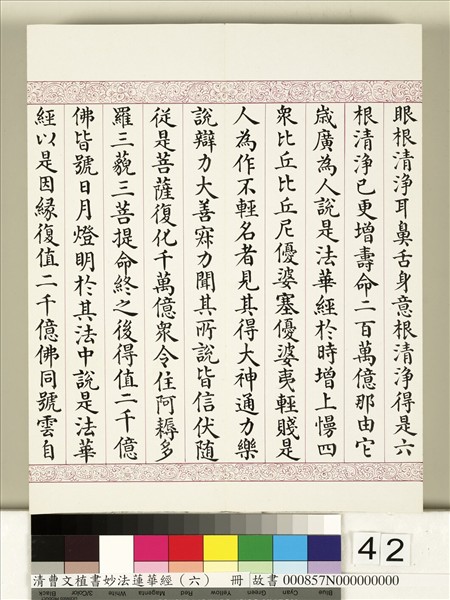 眼根清淨耳鼻舌身意根清淨得是六
根清淨已更增壽命二百萬億那由它
歲廣為人說是法華經於時增上慢四
眾比丘比丘尼優婆塞優婆夷輕賤是
人為作不輕名者見其得大神通力樂
說辯力大善寂力聞其所說皆信伏隨
從是菩薩復化千萬億眾令住阿耨多
羅三藐三菩提命終之後得值二千億
佛皆號日月燈明於其法中說是法華
經以是因緣復值二千億佛同號雲自
42
Black
3/Color
White
Magenta
Red
Yellow
Green
Cyan
Blue
清曹文植書妙法蓮華經（六） 冊 故書 000857N000000000